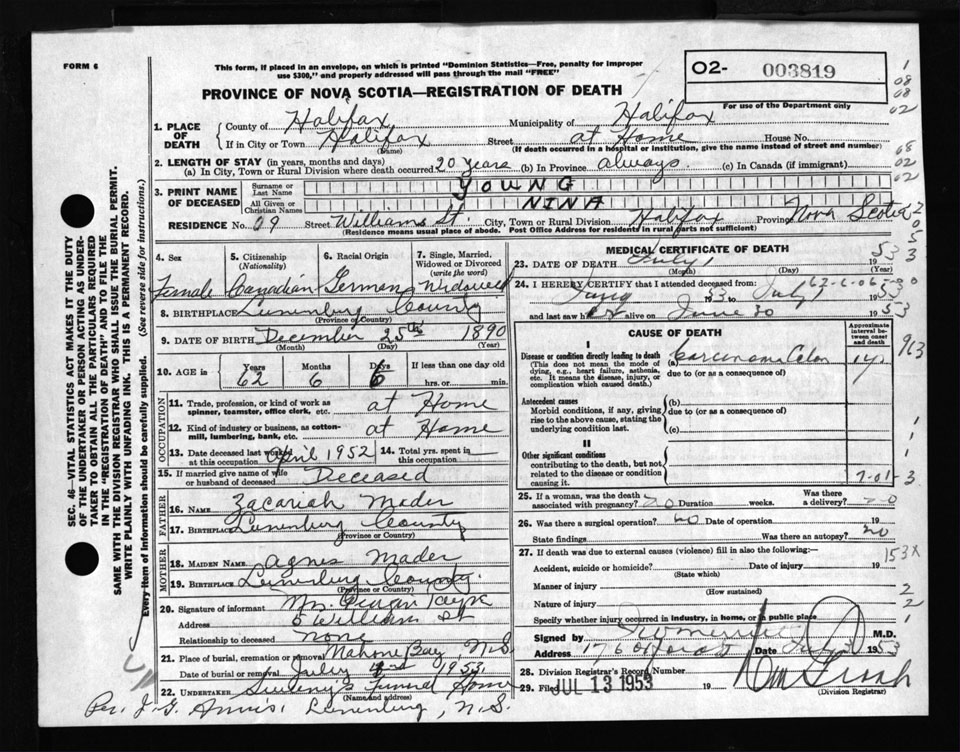 FORM 6
This form, if placed in an envelope, on which is printed "Dominion Statistics—Free, penalty for improper
use $300," and properly addressed will pass through the mail "FREE"
O2- 003819
For use of the Department only
PROVINCE OF NOVA SCOTIA—REGISTRATION OF DEATH
1. PLACE OF DEATH
County of Halifax Municipality of Halifax
If in City or Town Halifax Street at Home House No.
(Name) (If death occurred in a hospital or institution, give the name instead of street and number)
2. LENGTH OF STAY (in years, months and days)
(a) In City, Town or Rural Division where death occurred 20 years (b) In Province always. (c) In Canada (if immigrant)
3. PRINT NAME OF DECEASED
Surname or Last Name YOUNG
All Given or Christian Names NINA
RESIDENCE No. 09 Street Williams St. City, Town or Rural Division Halifax Province Nova Scotia
(Residence means usual place of abode. Post Office Address for residents in rural parts not sufficient)
4. Sex Female
5. Citizenship (Nationality) Canadian
6. Racial Origin German
7. Single, Married, Widowed or Divorced (write the word) Widowed
8. BIRTHPLACE Lunenburg County
(Province or County)
9. DATE OF BIRTH December 25th 1890
(Month) (Day) (Year)
10. AGE in Years 62 Months 6 Days 6 If less than one day old hrs. or min.
OCCUPATION
11. Trade, profession, or kind of work as spinner, teamster, office clerk, etc. at Home
12. Kind of industry or business, as cotton-mill, lumbering, bank, etc. at Home
13. Date deceased last worked at this occupation April 1952 14. Total yrs. spent in this occupation
15. If married give name of wife or husband of deceased Deceased
FATHER
16. NAME Zacariah Mader
17. BIRTHPLACE Lunenburg County
(Province or County)
MOTHER
18. MAIDEN NAME Agnes Mader
19. BIRTHPLACE Lunenburg County.
(Province or County)
20. Signature of informant Mrs.
Address 6 William St
Relationship to deceased None
21. Place of burial, cremation or removal Mahone Bay, N.S.
Date of burial or removal July 1953.
22. UNDERTAKER Sweeny's Funeral Home
(Name and address)
Per. J. G. Lunenburg, N.S.
MEDICAL CERTIFICATE OF DEATH
23. DATE OF DEATH July 1 53
(Month) (Day) (Year)
24. I HEREBY CERTIFY that I attended deceased from:
53 to July 1953
and last saw h alive on June 30 1953
CAUSE OF DEATH
Approximate interval between onset and death
I
Disease or condition directly leading to death
(This does not mean the mode of dying, e.g., heart failure, asthenia, etc. It means the disease, injury, or complication which caused death.)
(a) Carcinoma Colon
due to (or as a consequence of)
Antecedent causes
Morbid conditions, if any, giving rise to the above cause, stating the underlying condition last.
(b)
due to (or as a consequence of)
(c)
II
Other significant conditions
contributing to the death, but not related to the disease or condition causing it.
7-01-3
25. If a woman, was the death associated with pregnancy? no Duration weeks. Was there a delivery? no
26. Was there a surgical operation? no Date of operation 19
State findings Was there an autopsy? no
27. If death was due to external causes (violence) fill in also the following:—
Accident, suicide or homicide? Date of injury 19
(State which)
153X
Manner of injury
(How sustained)
2
Nature of injury
2
Specify whether injury occurred in industry, in home, or in public place
Signed by M.D.
Address 176 Date July 3 1953
28. Division Registrar's Record Number
29. Filed JUL 13 1953 19
(Division Registrar)
SEC. 46—VITAL STATISTICS ACT MAKES IT THE DUTY
OF THE UNDERTAKER OR PERSON ACTING AS UNDER-
TAKER TO OBTAIN ALL THE PARTICULARS REQUIRED
IN THE "REGISTRATION OF DEATH" AND TO FILE THE
SAME WITH THE DIVISION REGISTRAR WHO SHALL ISSUE THE BURIAL PERMIT.
WRITE PLAINLY WITH UNFADING INK. THIS IS A PERMANENT RECORD.
Every item of information should be carefully supplied. (See reverse side for instructions.)